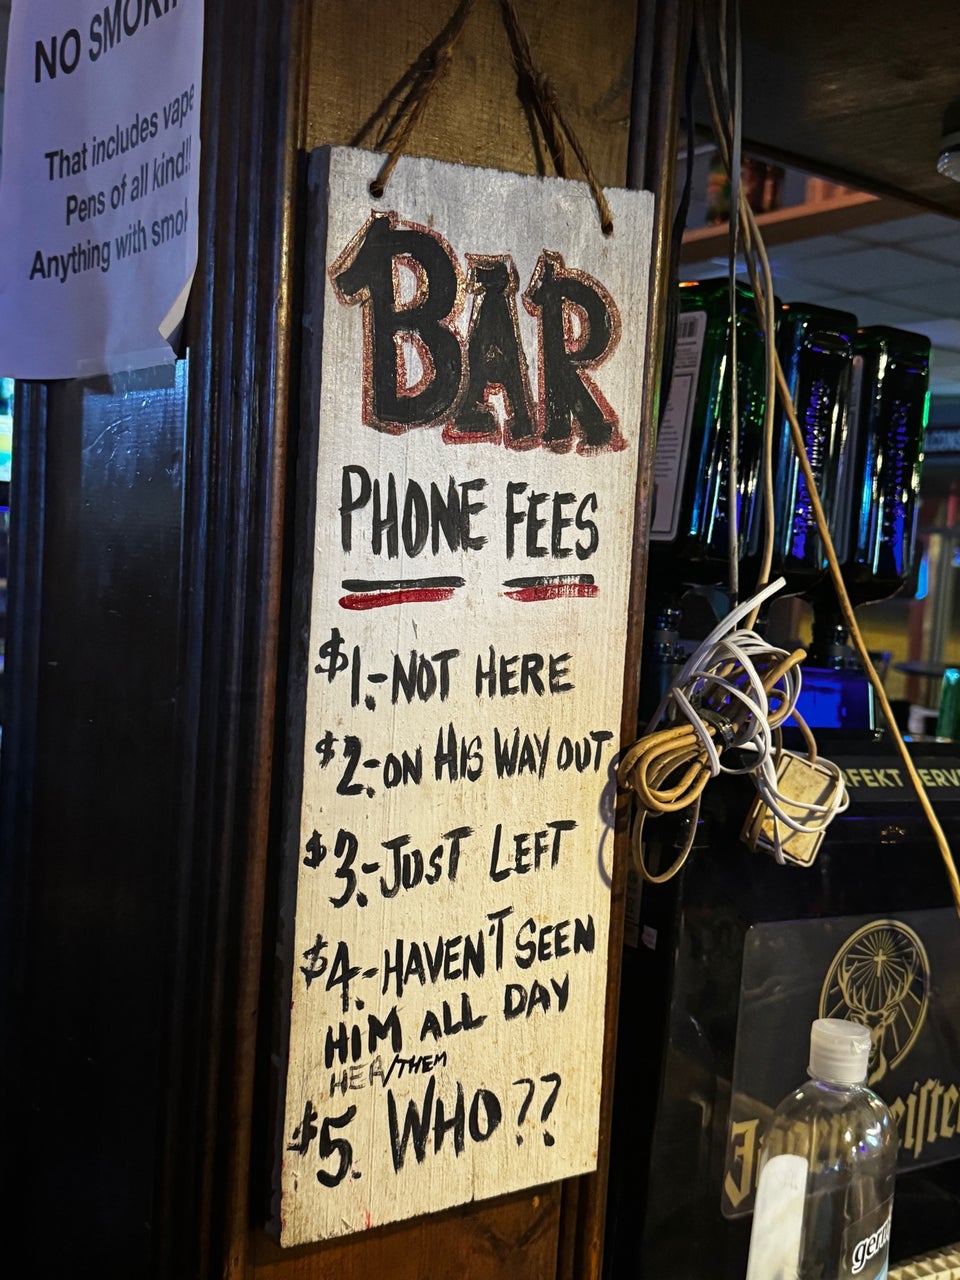 NO
That includes vape
Pens of all kind!!
Anything with
BAR
PHONE FEES
$1.-NOT HERE
$2.-ON HIS WAY OUT
$3.-JUST LEFT
$4.-HAVEN'T SEEN
HIM ALL DAY
HER/THEM
$5. WHO??
Jägermeister